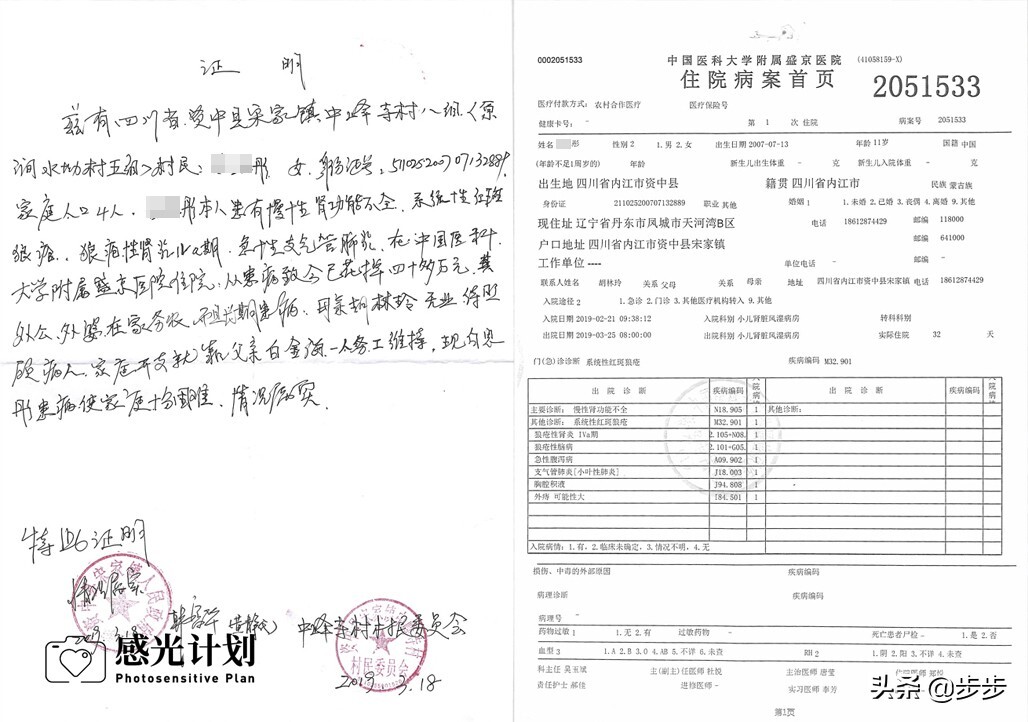 证 明
兹有四川省资中县宋家镇中峰寺村八组（原
涧水坳村五组）村民： 彤，女，身份证号：
家庭人口4人， 彤本人患有慢性肾功能不全，系统性红斑
狼疮，狼疮性肾炎IVa期，急性支气管肺炎，在中国医科
大学附属盛京医院住院，从患病致今已花掉四十多万元，
外公、外婆在家务农，且长期患病，母亲胡林玲无业
病人，家庭开支就靠父亲白金海一人务工维持，现
彤患病使家庭十分困难，情况属实
特此证明
情况属实
2019.3.18
中峰寺村村民委员会
村民委员会
2019 3.18
感光计划
Photosensitive Plan
0002051533
中国医科大学附属盛京医院 (41058159-X)
住院病案首页 2051533
医疗付款方式：农村合作医疗 医疗保险号
健康卡号： - 第 1 次 住院 病案号 2051533
姓名 彤 性别 2 1.男 2.女 出生日期 2007-07-13 年龄 11岁 国籍 中国
(年龄不足1周岁的) 年龄 新生儿出生体重 - 克 新生儿入院体重 - 克
出生地 四川省内江市资中县 籍贯 四川省内江市 民族 蒙古族
身份证 211025200707132889 职业 其他 婚姻 1 1.未婚 2.已婚 3.丧偶 4.离婚 9.其他
现住址 辽宁省丹东市凤城市天河湾B区 电话 18612874429 邮编 118000
户口地址 四川省内江市资中县宋家镇 邮编 641000
工作单位 ---- 单位电话 - 邮编 -
联系人姓名 胡林玲 关系 父母 关系 母亲 地址 四川省内江市资中县宋家镇 电话 18612874429
入院途径 2 1.急诊 2.门诊 3.其他医疗机构转入 9.其他
入院日期 2019-02-21 09:38:12 入院科别 小儿肾脏风湿病房 转科科别
出院日期 2019-03-25 08:00:00 出院科别 小儿肾脏风湿病房 实际住院 32 天
门(急)诊诊断 系统性红斑狼疮 疾病编码 M32.901
出 院 诊 断 疾病编码 入院病情 出 院 诊 断 疾病编码 入院病情
主要诊断： 慢性肾功能不全 N18.905 1 其他诊断：
其他诊断： 系统性红斑狼疮 M32.901 1
狼疮性肾炎 IVa期 2.105+N08. 1
狼疮性脑病 2.101+G05. 1
急性腹泻病 A09.902 1
支气管肺炎[小叶性肺炎] J18.003 1
胸腔积液 J94.808 1
外痔 可能性大 I84.501 1
入院病情：1.有，2.临床未确定，3.情况不明，4.无
损伤、中毒的外部原因 疾病编码
病理诊断 疾病编码
病理号 -
药物过敏 1 1.无 2.有 过敏药物 - 死亡患者尸检 - 1.是 2.否
血型 3 1.A 2.B 3.O 4.AB 5.不详 6.未查 RH 2 1.阴 2.阳 3.不详 4.未查
科主任 吴玉斌 主(副主)任医师 杜悦 主治医师 唐莹 住院医师
责任护士 郝佳 进修医师 - 实习医师 李芳
第1页
头条 @步步